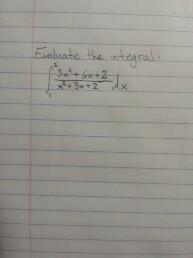 Evaluate the integral:
∫₁² (3x² + 6x + 2)/(x² + 3x + 2) dx